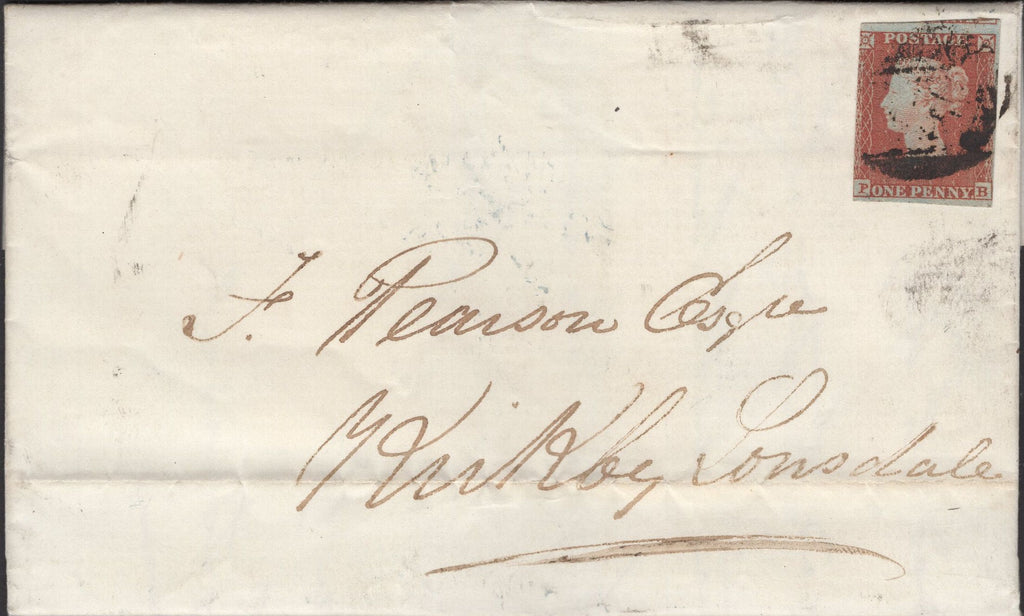 POSTAGE
P ONE PENNY B
F. Pearson Esqre
Kirkby Lonsdale